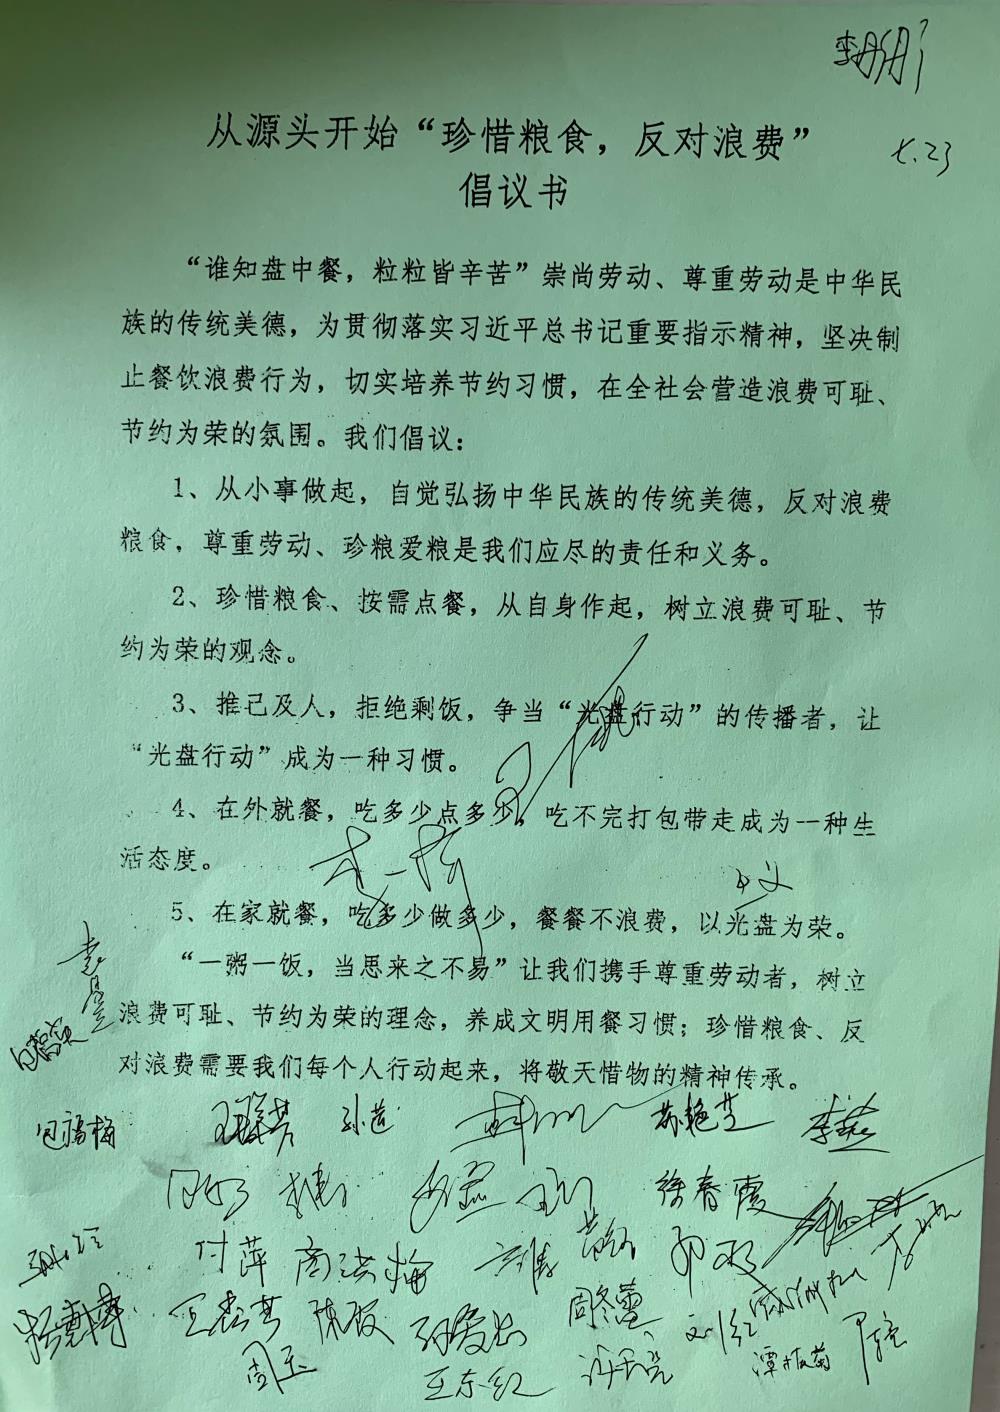 李丹彤
从源头开始“珍惜粮食，反对浪费”
倡议书
“谁知盘中餐，粒粒皆辛苦”崇尚劳动、尊重劳动是中华民
族的传统美德，为贯彻落实习近平总书记重要指示精神，坚决制
止餐饮浪费行为，切实培养节约习惯，在全社会营造浪费可耻、
节约为荣的氛围。我们倡议：
1、从小事做起，自觉弘扬中华民族的传统美德，反对浪费
粮食，尊重劳动、珍粮爱粮是我们应尽的责任和义务。
2、珍惜粮食、按需点餐，从自身作起，树立浪费可耻、节
约为荣的观念。
3、推己及人，拒绝剩饭，争当“光盘行动”的传播者，让
“光盘行动”成为一种习惯。
4、在外就餐，吃多少点多少，吃不完打包带走成为一种生
活态度。
5、在家就餐，吃多少做多少，餐餐不浪费，以光盘为荣。
“一粥一饭，当思来之不易”让我们携手尊重劳动者，树立
浪费可耻、节约为荣的理念，养成文明用餐习惯；珍惜粮食、反
对浪费需要我们每个人行动起来，将敬天惜物的精神传承。
包福梅 孙莲 苏艳芝 李燕
徐春霞
付萍 商洪梅
陈霞 周冬蕾
周玉 王东红 潭振菊